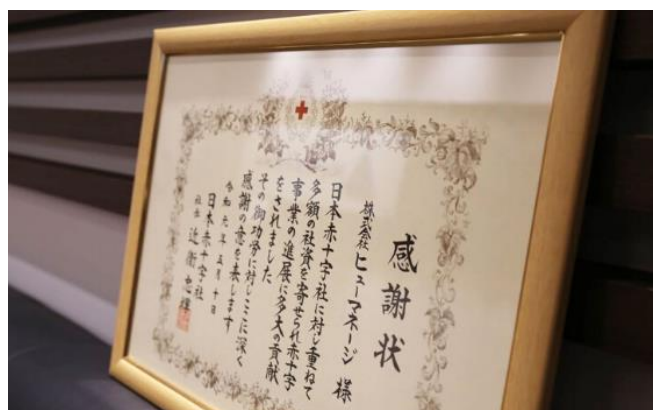 感謝状
株式会社ヒューマネージ 様
日本赤十字社に対し重ねて
多額の社資を寄せられ赤十字
事業の進展に多大の貢献
をされました
その御功労に対しここに深く
感謝の意を表します
令和元年五月十日
日本赤十字社
社長 近衞忠煇